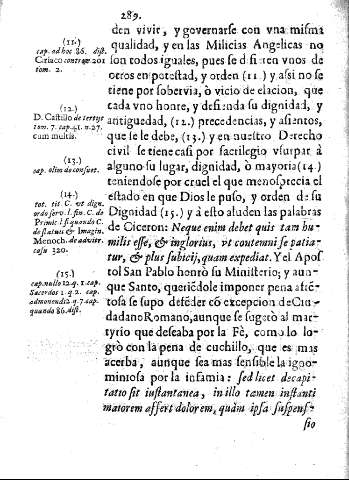 289.
den vivir, y governarse con vna misma
qualidad, y en las Milicias Angelicas no
son todos iguales, pues se diferen vnos de
otros en potestad, y orden (11.) y assi no se
tiene por sobervia, ò vicio de elacion, que
cada vno honre, y defienda su dignidad, y
antiguedad, (12.) precedencias, y asientos,
que se le debe, (13.) y en nuestro Derecho
civil se tiene casi por sacrilegio vsurpar à
alguno su lugar, dignidad, ò mayoria (14.)
teniendose por cruel el que menosprecia el
estado en que Dios le puso, y orden de su
Dignidad (15.) y à esto aluden las palabras
de Ciceron: Neque enim debet quis tam hu-
milis esse, & inglorius, vt contemni se patia-
tur, & plus subijci, quam expediat. Y el Apos
tol San Pablo honrò su Ministerio; y aun-
que Santo, queriẽdole imponer pena afrẽ-
tosa se supo defẽder cõ excepcion de Ciu-
dadano Romano, aunque se sugetò al mar-
tyrio que deseaba por la Fè, como lo lo-
grò con la pena de cuchillo, que es mas
acerba, aunque sea mas sensible la igno-
miniosa por la infamia: sed licet decapi-
tatio sit instantanea, in illo tamen instanti
maiorem affert dolorem, quàm ipsa suspens-
sio
(11.)
cap. ad hoc 86. dist.
Ciriaco controv. 201
tom. 2.
(12.)
D. Castillo de tertys
tom. 7. cap. 41. n. 27.
cum multis.
(13.)
cap. olim de consuet.
(14.)
tot. tit C. vt dign.
ordo serv. l. fin C. de
Primic. l. si quando C.
de statuis & Imagin.
Menoch. de arbitr.
casu 320.
(15.)
cap. nullo 12. q. 1. cap.
Sacerdos 1. q. 2. cap.
admonendi 2 q. 7. cap.
quando 86. dist.